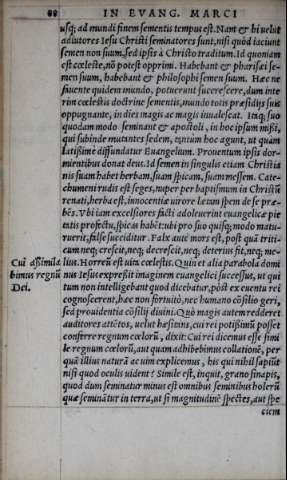 88 IN EVANG. MARCI
usq; ad mundi finem sementis tempus est. Nam & hi uelut
adiutores Iesu Christi seminatores sunt, nisi quòd iaciunt
semen non suum, sed ipsis à Christo traditum. Id quoniam
est cœleste, nõ potest opprimi. Habebant & pharisæi se-
men suum, habebant & philosophi semen suum. Hæc ne
fauente quidem mundo, potuerunt succrescere, dum inte
rim cœlestis doctrinæ sementis, mundo totis præsidijs suis
oppugnante, in dies magis ac magis inualescat. Itaq; suo
quodam modo seminant & apostoli, in hoc ipsum missi,
qui subinde mutantes sedem, tantum hoc agunt, ut quàm
latissime diffundatur Euangelium. Prouentum ipsis dor-
mientibus donat deus. Id semen in singulis etiam Christia
nis suam habet herbam, suam spicam, suam messem. Cate-
chumeni rudis est seges, nuper per baptismum in Christũ
renati, herba est, innocentiæ uirore lætam spem de se præ-
bẽs. Vbi iam excelsiores facti adoleuerint euangelicæ pie
tatis profectu, spicas habẽt: ubi pro suo quisq; modo matu-
ruerit, false succiditur. Falx autẽ mors est, post quã triti-
cum neq; crescit, neq; decrescit, neq; deterius fit, neq; me-
Cui assimila
lius. Horreũ est uita cœlestis. Quin et alia parabola domi
bimus regnũ
nus Iesus expressit imaginem euangelici successus, ut qui
Dei.
tum non intelligebant quod dicebatur, pòst ex euentu rei
cognoscerent, hæc non fortuitò, nec humano cõsilio geri,
sed prouidentia cõsilij diuini. Quò magis autem redderet
auditores attẽtos, uelut hæsitans, cui rei potissimũ posset
conferre regnum cœlorũ, dixit: Cui rei dicemus esse simi
le regnum cœlorũ, aut quam adhibebimus collationẽ, per
quã illius naturã ac uim explicemus, his qui nihil sapiũt
nisi quod oculis uident? Simile est, inquit, grano sinapis,
quod dum seminatur minus est omnibus seminibus holerũ
quæ seminãtur in terra, ut si magnitudinẽ spectes, aut spe
ciem